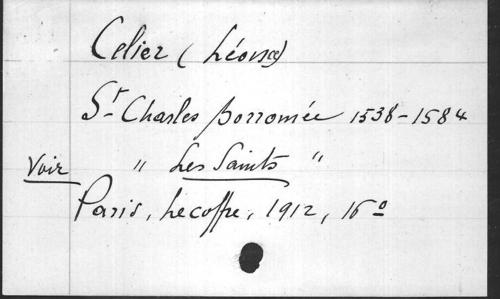 Celier (Léonce)
St Charles Borromée 1538-1584
Voir " Les Saints "
Paris, Lecoffre, 1912, 16°